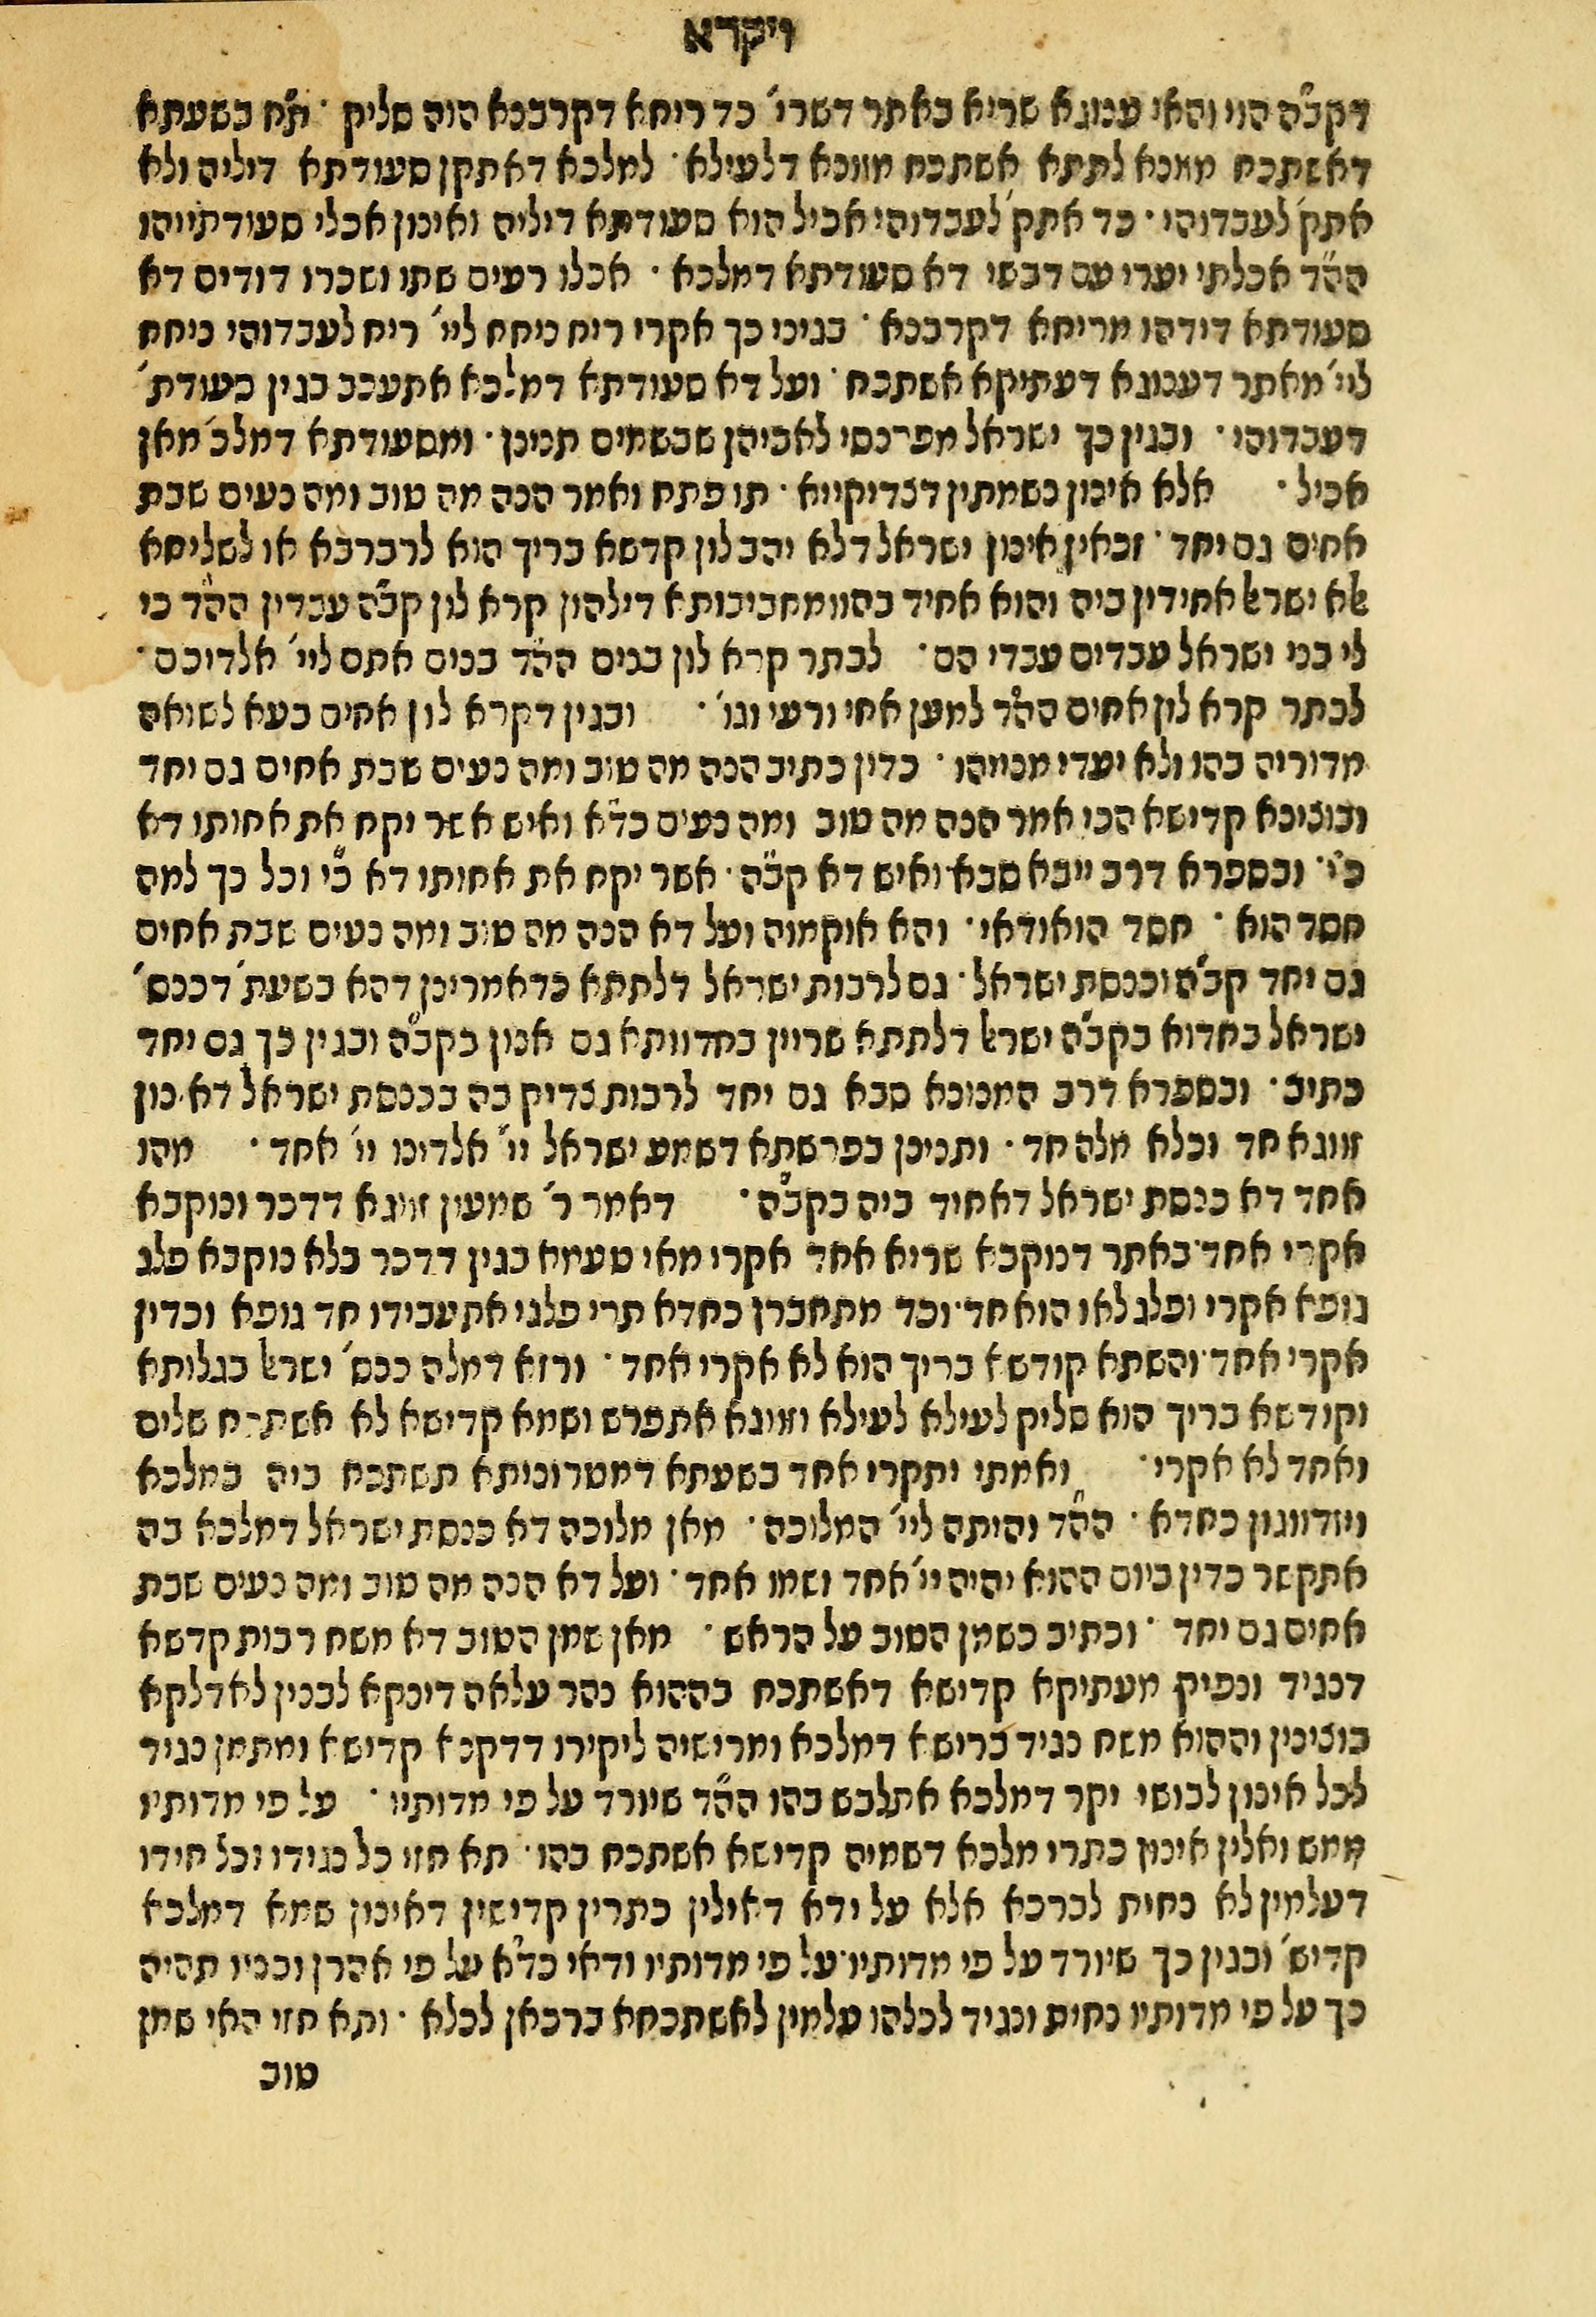 ויקרא
דקב"ה הוי והאי ענונא שריא באתר דשרי' כד ריחא דקרבנא הוה סליק · ת"ח בשעתא
דאשתכח מזונא לתתא אשתכח מזונא דלעילא · למלכא דאתקן סעודתא דיליה ולא
אתק' לעבדוהי · כד אתק' לעבדוהי אכיל הוא סעודתא דיליה ואינון אכלי סעודתייהו
הה"ד אכלתי יערי עם דבשי דא סעודתא דמלכא · אכלו רעים שתו ושכרו דודים דא
סעודתא דידהו מריחא דקרבנא · בגיני כך אקרי ריח ניחח ליי' ריח לעבדוהי ניחח
ליי' מאתר דענוגא דעתיקא אשתכח · ועל דא סעודתא דמלכא אתעכב בגין סעודת'
דעבדוהי · ובגין כך ישראל מפרנסי לאביהן שבשמים תנינן · ומסעודתא דמלכ' מאן
אכיל · אלא אינון נשמתין דצדיקייא · תו פתח ואמר הנה מה טוב ומה נעים שבת
אחים גם יחד · זכאין אינון ישראל דלא יהב לון קדשא בריך הוא לרברבא או לשליחא
אלא ישראל אחידין ביה והוא אחיד בהו ומחביבותא דילהון קרא לון קב"ה עבדין הה"ד כי
לי בני ישראל עבדים עבדי הם · לבתר קרא לון בנים הה"ד בנים אתם ליי' אלדיכם ·
לבתר קרא לון אחים הה"ד למען אחי ורעי וגו' · ובגין דקרא לון אחים בעא לשואה
מדוריה בהו ולא יעדי מנייהו · כדין כתיב הנה מה טוב ומה נעים שבת אחים גם יחד
ובוצינא קדישא הכי אמר הנה מה טוב ומה נעים כד"א ואיש אשר יקח את אחותו דא
כ"י · ובספרא דרב ייבא סבא · ואיש דא קב"ה · אשר יקח את אחותו דא כ"י וכל כך למה
חסד הוא · חסד הוא ודאי · והא אוקמוה ועל דא הנה מה טוב ומה נעים שבת אחים
גם יחד קב"ה וכנסת ישראל · גם לרבות ישראל דלתתא כדאמרינן דהא בשעת' דכנס'
ישראל בחדוא בקב"ה ישראל דלתתא שריין בחדוותא גם אנון בקב"ה ובגין כך גם יחד
כתיב · ובספרא דרב המנונא סבא גם יחד לרבות צדיק בה בכנסת ישראל דאינון
זווגא חד וכלא מלה חד · ותנינן בפרשתא דשמע ישראל יי' אלדינו יי' אחד · מהו
אחד דא כנסת ישראל דאחוד ביה בקב"ה · דאמר ר' שמעון זווגא דדכר ונוקבא
אקרי אחד · באתר דנוקבא שריא אחד אקרו מאי טעמא בגין דדכר בלא נוקבא פלג
גופא אקרי ופלג לאו הוא חד · וכד מתחברן כחדא תרי פלגי אתעבידו חד גופא וכדין
אקרי אחד · והשתא קודשא בריך הוא לא אקרי אחד · ורזא דמלה כנס' ישראל בגלותא
וקודשא בריך הוא סליק לעילא לעילא וזווגא אתפרש ושמא קדישא לא אשתכח שלים
ואחד לא אקרי · ואמתי יתקרי אחד בשעתא דמטרוניתא תשתכח ביה במלכא
ויזדווגון כחדא · הה"ד והיתה ליי' המלוכה · מאן מלוכה דא כנסת ישראל דמלכא בה
אתקשר כדין ביום ההוא יהיה יי' אחד ושמו אחד · ועל דא הנה מה טוב ומה נעים שבת
אחים גם יחד · וכתיב כשמן הטוב על הראש · מאן שמן הטוב דא משח רבות קדשא
דנגיד ונפיק מעתיקא קדישא דאשתכח בההוא נהר עלאה דינקא לבנין לאדלקא
בוצינין וההוא משח נגיד ברישא דמלכא ומרישיה ליקירו דדקנא קדישא ומתמן נגיד
לכל אינון לבושי יקר דמלכא אתלבש בהו הה"ד שיורד על פי מדותיו · על פי מדותיו
ממש ואלין אינון כתרי מלכא דשמיה קדישא אשתכח בהו · תא חזי כל נגידו וכל חידו
דעלמין לא נחית לברכא אלא על ידא דאילין כתרין קדישין דאינון שמא דמלכא
קדיש' ובגין כך שיורד על פי מדותיו · על פי מדותיו ודאי כד"א על פי אהרן ובניו תהיה
כך על פי מדותיו נחית ונגיד לכלהו עלמין לאשתכחא ברכאן לכלא · ותא חזי האי שמן
טוב